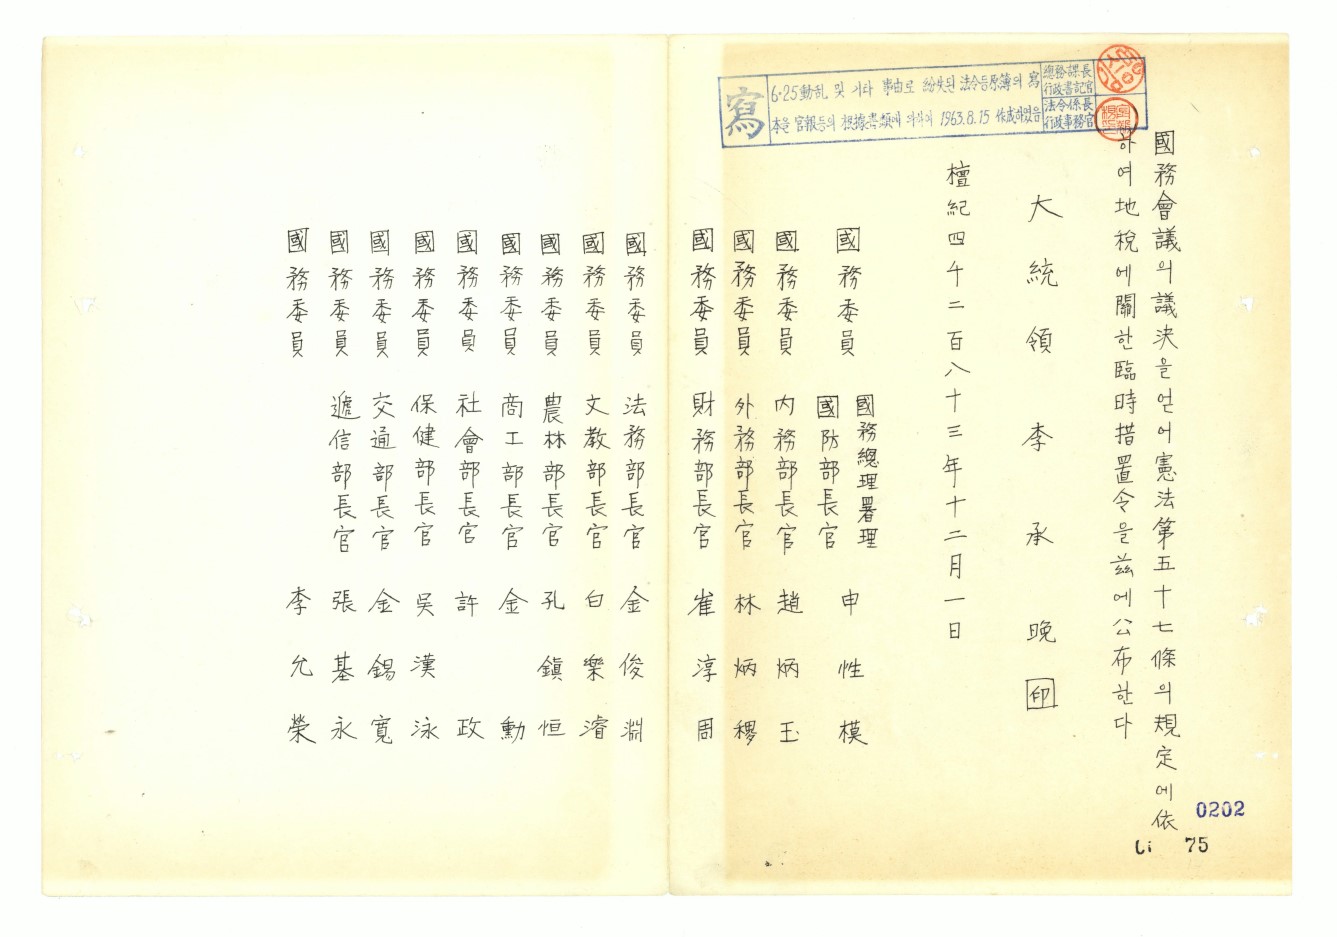 寫
6·25動乱 및 기타 事由로 紛失된 法令등原簿의 寫
本을 官報등의 根據書類에 의하여 1963.8.15 作成하였음
總務課長
行政書記官
法令係長
行政事務官
國務會議의議決을얻어憲法第五十七條의規定에依
하여地稅에關한臨時措置令을玆에公布한다
大統領 李承晩 印
檀紀四千二百八十三年十二月一日
國務委員 國務總理署理
國防部長官 申性模
國務委員 內務部長官 趙炳玉
國務委員 外務部長官 林炳稷
國務委員 財務部長官 崔淳周
國務委員 法務部長官 金俊淵
國務委員 文敎部長官 白樂濬
國務委員 農林部長官 孔鎭恒
國務委員 商工部長官 金勳
國務委員 社會部長官 許政
國務委員 保健部長官 吳漢泳
國務委員 交通部長官 金錫寬
國務委員 遞信部長官 張基永
國務委員 李允榮
0202
Li 75